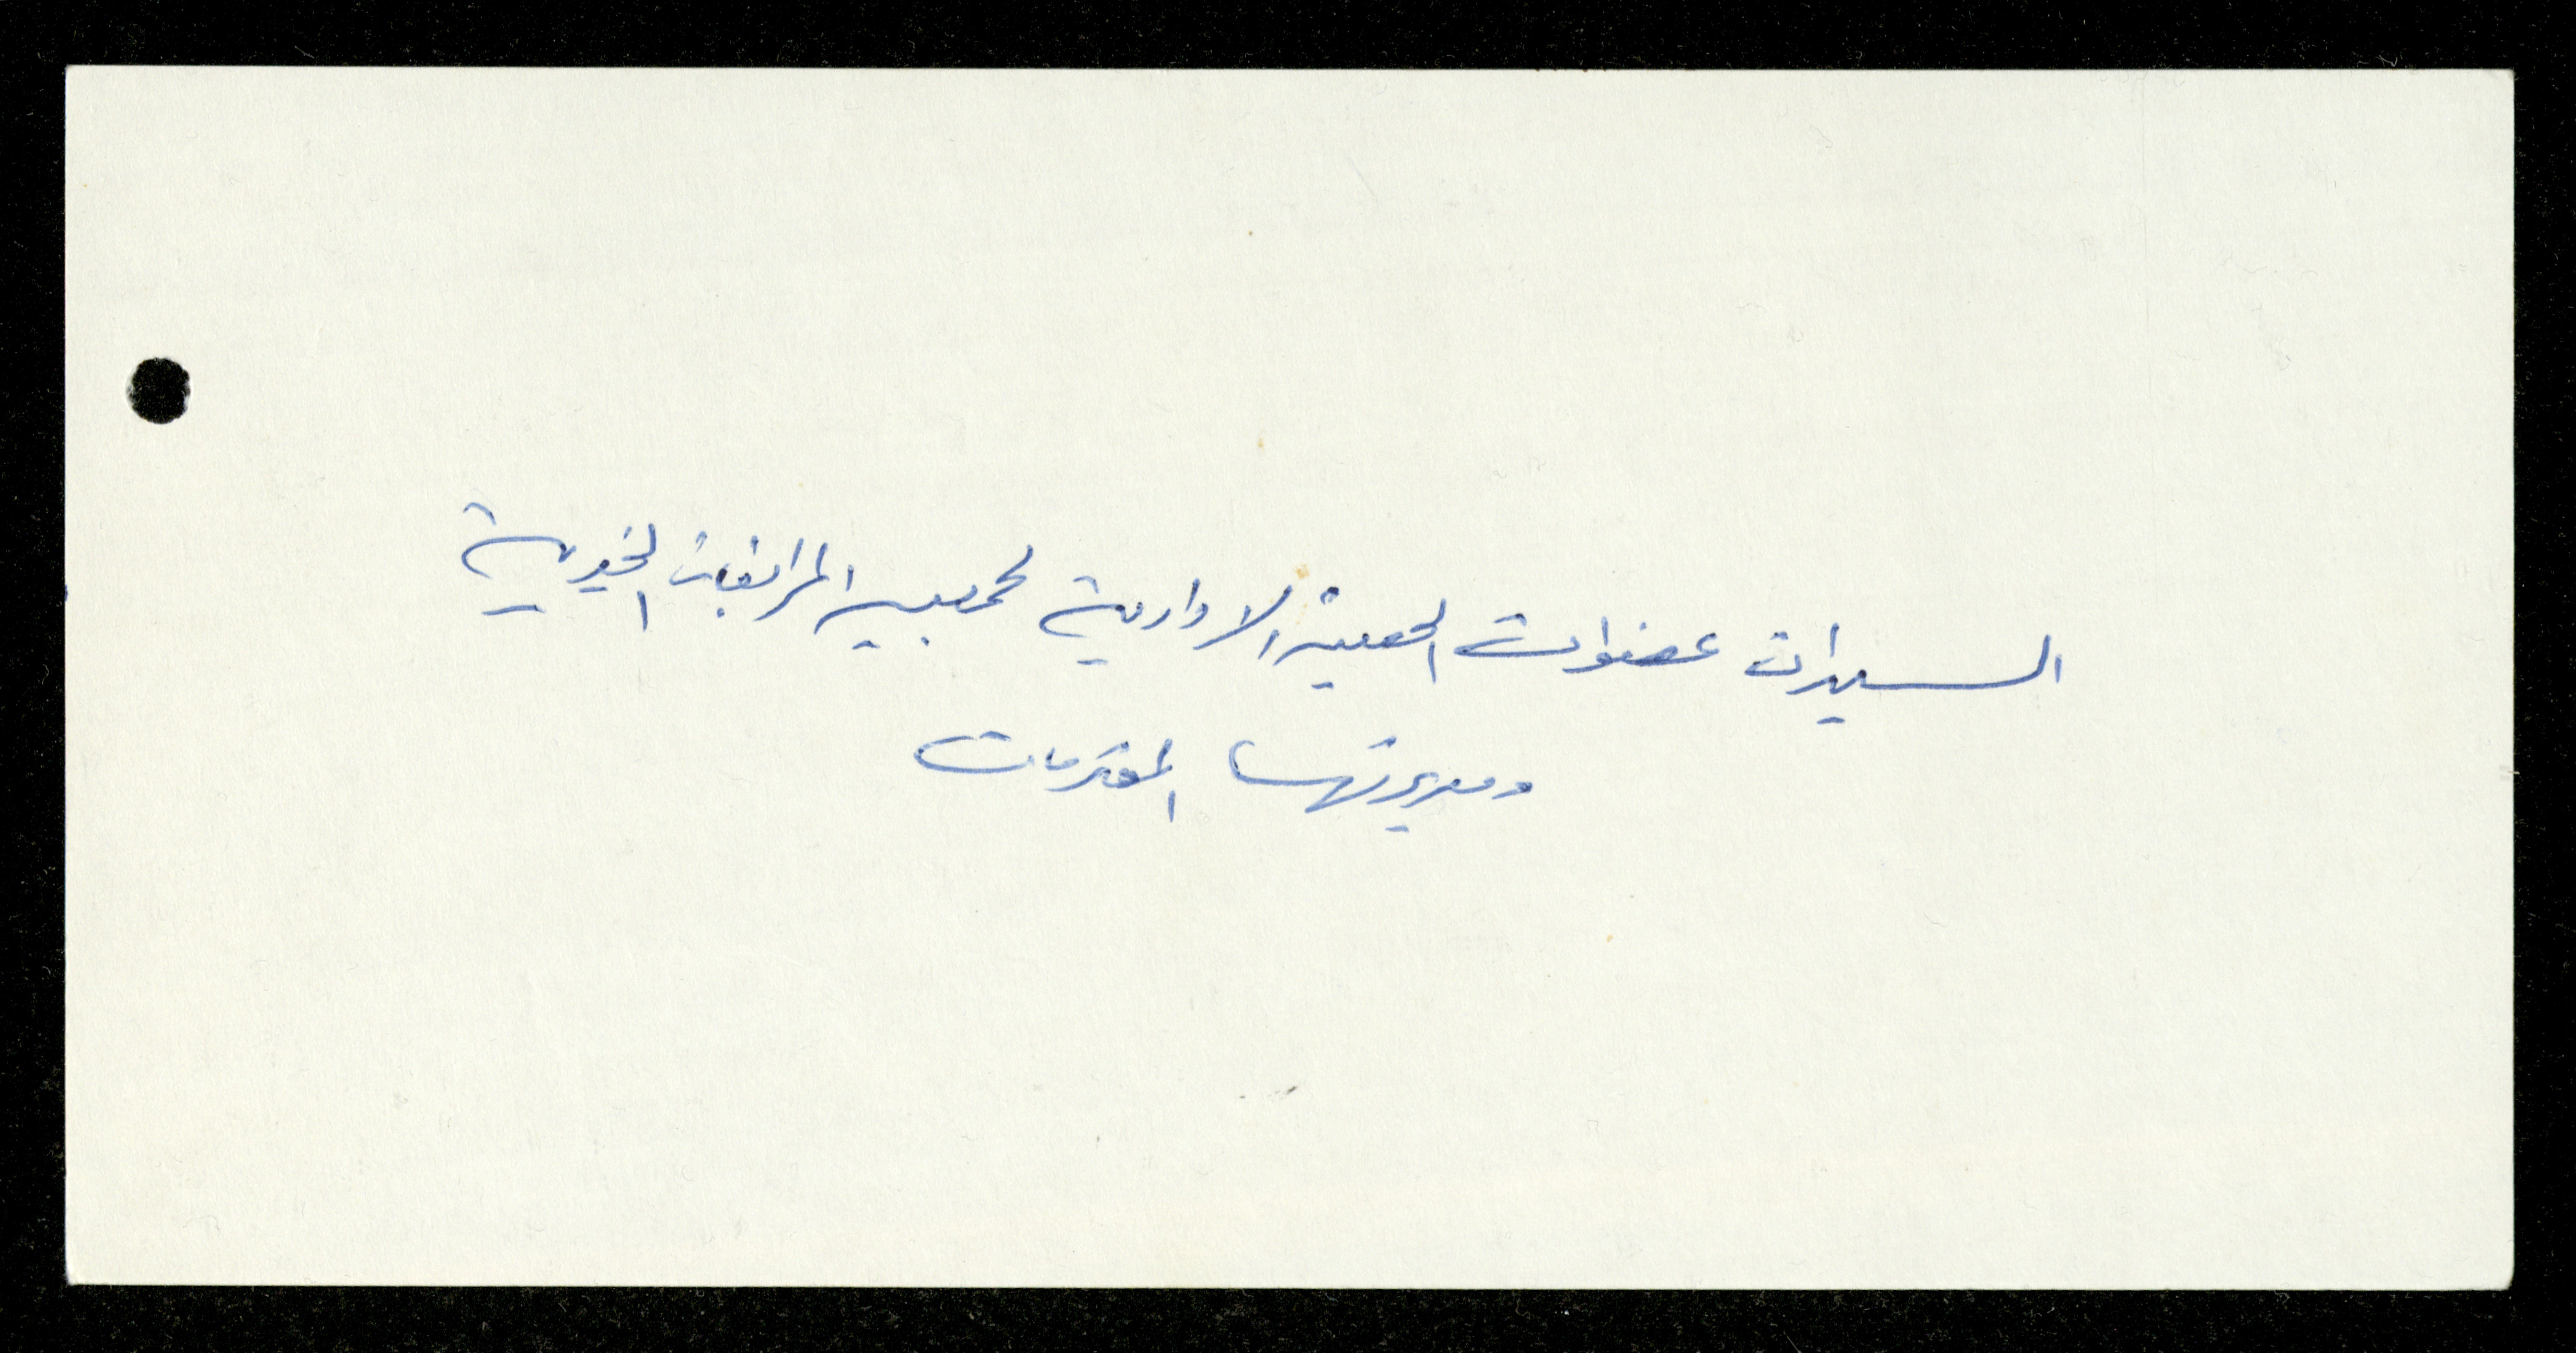 السيدات عضوات الجمعية الادارية لجمعية المرافبات الخيرية
ومديرتها المحترمات